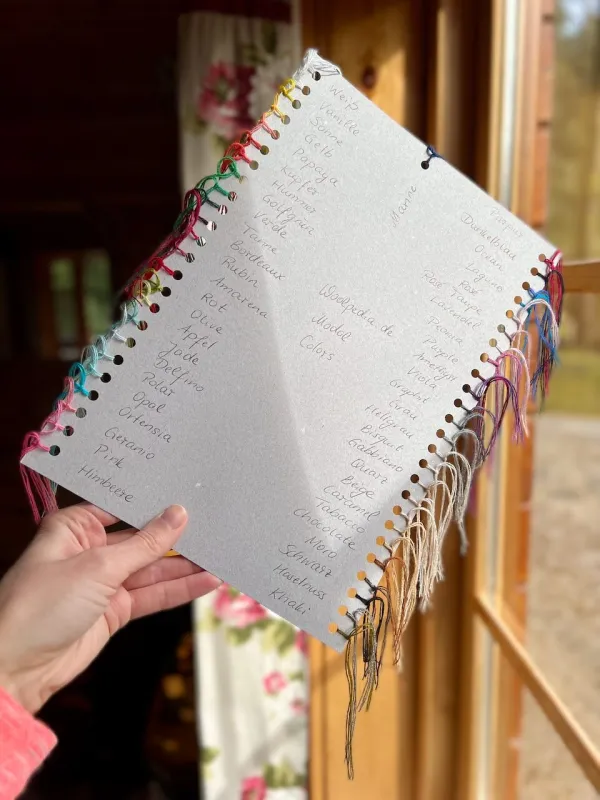 Weiß
Vanille
Sonne
Gelb
Papaya
Kupfer
Hummer
Golfgrün
Verde
Tanne
Bordeaux
Rubin
Amarena
Rot
Olive
Apfel
Jade
Delfino
Polar
Opal
Ortensia
Geranio
Pink
Himbeere
Woolpedia.de
Modal
Colors
Marine
Dunkelblau
Ocean
Laguna
Rosé
Rosé Taupe
Purple
Amethyst
Viola
Graphit
Grau
Hellgrau
Bisquit
Gabbiano
Quarz
Beige
Caramel
Tabacco
Chocolate
Moro
Schwarz
Haselnuss
Khaki